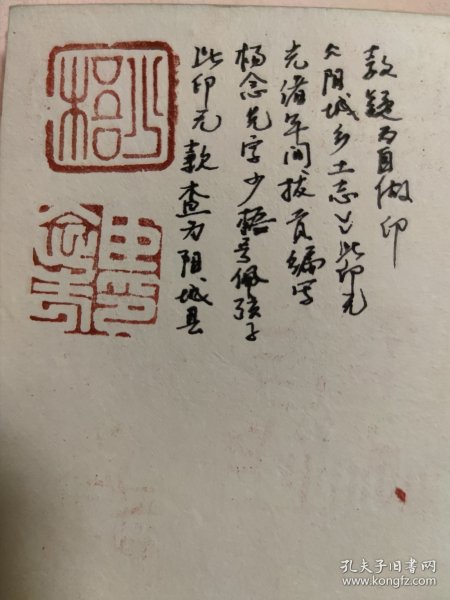 少梧
此印无款查为阳城县
杨念先字少梧号佩弦子
光绪年间拔贡编写
《阳城乡土志》此印无
款疑为自做印
孔夫子旧书网
www.kongfz.com